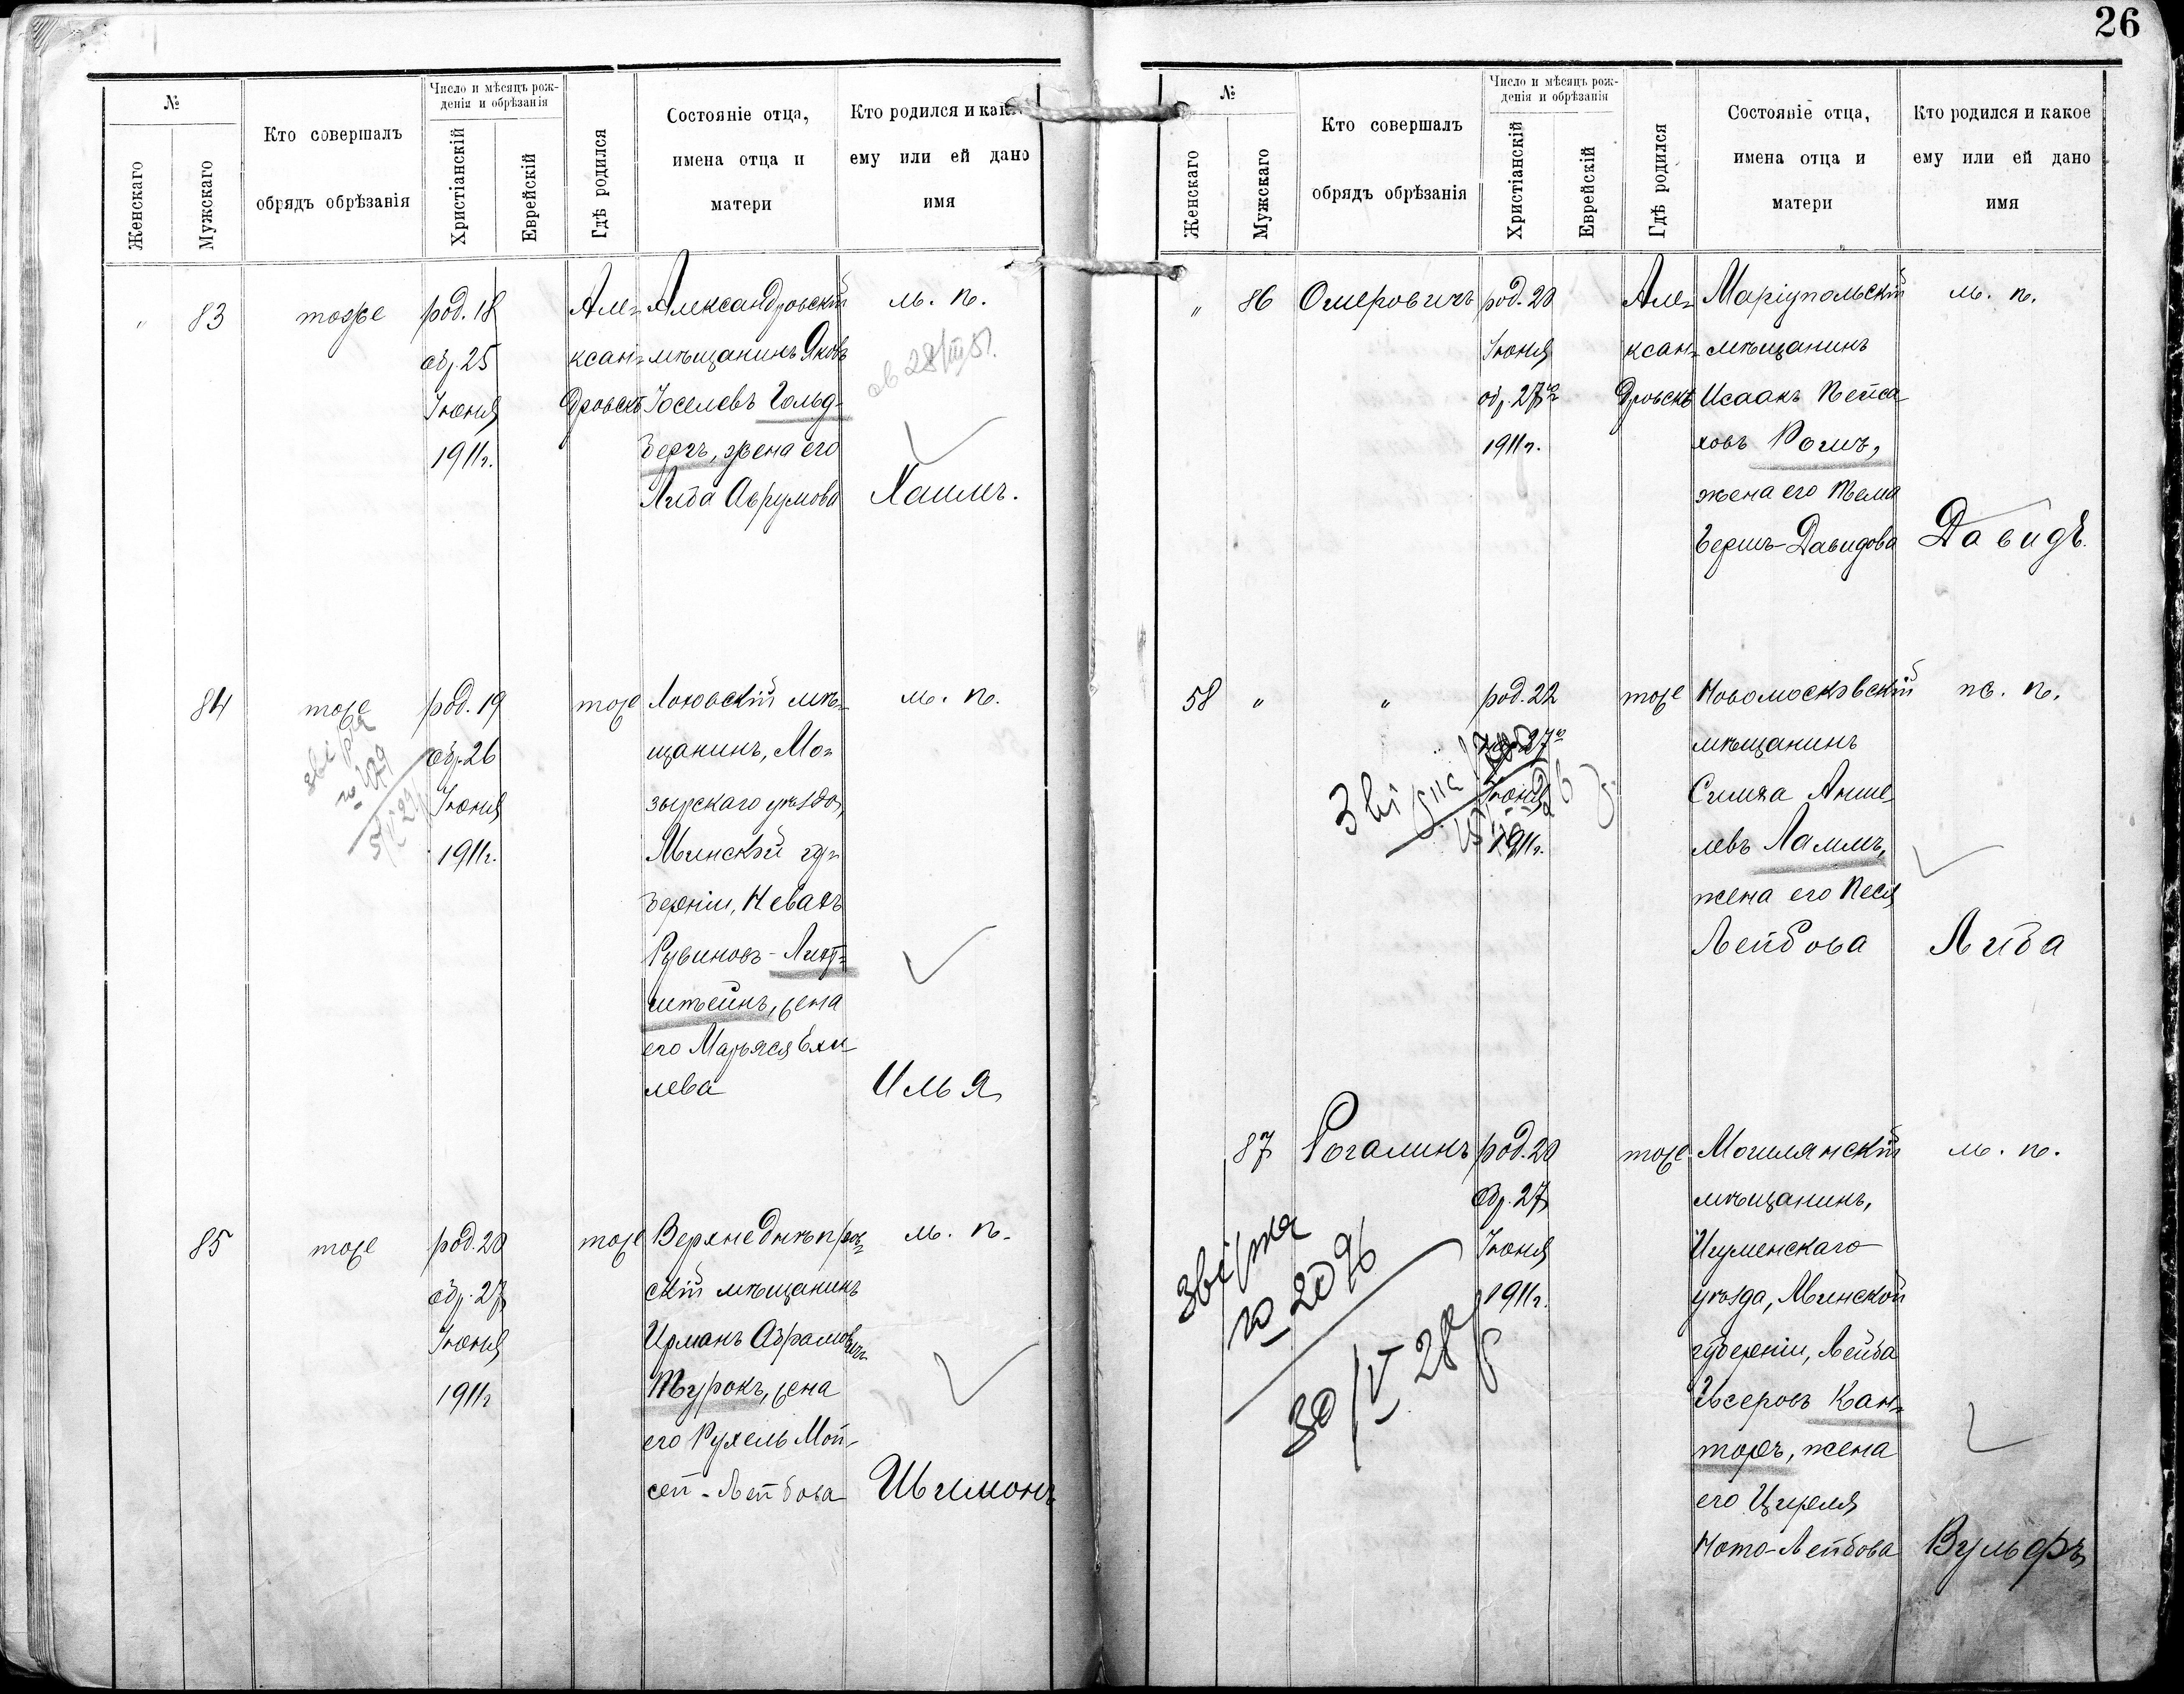 26
№
Женскаго
Мужскаго
Кто совершалъ
обрядъ обрѣзанія
Число и мѣсяцъ рож-
денія и обрѣзанія
Христіанскій
Еврейскій
Гдѣ родился
Состояніе отца,
имена отца и
матери
Кто родился и как
ему или ей дано
имя
"
83
тоже
род. 18
обр. 25
Іюня
1911 г.
Але-
ксан-
дровскѣ
Александровскій
мѣщанинъ Яковъ
Іоселевъ Гольд-
бергъ, жена его
Либа Аврумова
м. п.
28/III 51.
Хаимъ.
84
тоже
род. 19
обр. 26
Іюня
1911 г.
тоже
мѣ-
щанинъ, Мо-
зырскаго уѣзда,
Минской гу-
берніи, Невахъ
Рувиновъ-Лихт-
штейнъ, жена
его Марьяся Ехи-
лева
м. п.
Илья
85
тоже
род. 20
обр. 27
Іюня
1911 г
тоже
Верхнеднѣпров-
скій мѣщанинъ
Абрамовичъ
Турокъ, жена
его Рухель Мой-
сей-Лейбова
м. п.
Шлимонъ
№
Женскаго
Мужскаго
Кто совершалъ
обрядъ обрѣзанія
Число и мѣсяцъ рож-
денія и обрѣзанія
Христіанскій
Еврейскій
Гдѣ родился
Состояніе отца,
имена отца и
матери
Кто родился и какое
ему или ей дано
имя
"
86
Омеровичъ
род. 20
Іюня
обр. 27го
1911 г.
Але-
ксан-
дровскѣ
Маріупольскій
мѣщанинъ
Исаакъ Пейса-
ховъ
жена его Тема
Берша-Давидова
м. п.
Давидъ.
58
"
"
род. 22
Іюня
1911 г.
тоже
Новомосковскій
мѣщанинъ
Симха Анше-
левъ Ламмъ,
жена его Песя
Лейбова
ж. п.
Либа
87
Рогалинъ
род. 20
обр. 27
Іюня
1911 г.
звірка
№ 2096
30/V 28 р
тоже
Могилянскій
мѣщанинъ,
Игуменскаго
уѣзда, Минской
губерніи, Лейба
Иссеровъ Кан-
торъ, жена
его Циреля
Ното-Лейбова
м. п.
Вульфъ